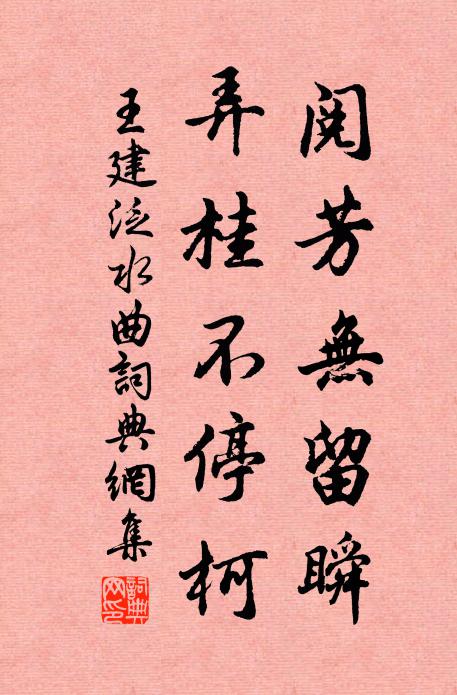 閱芳無留瞬
弄桂不停柯
王建泛水曲詞典網集
詞典網印